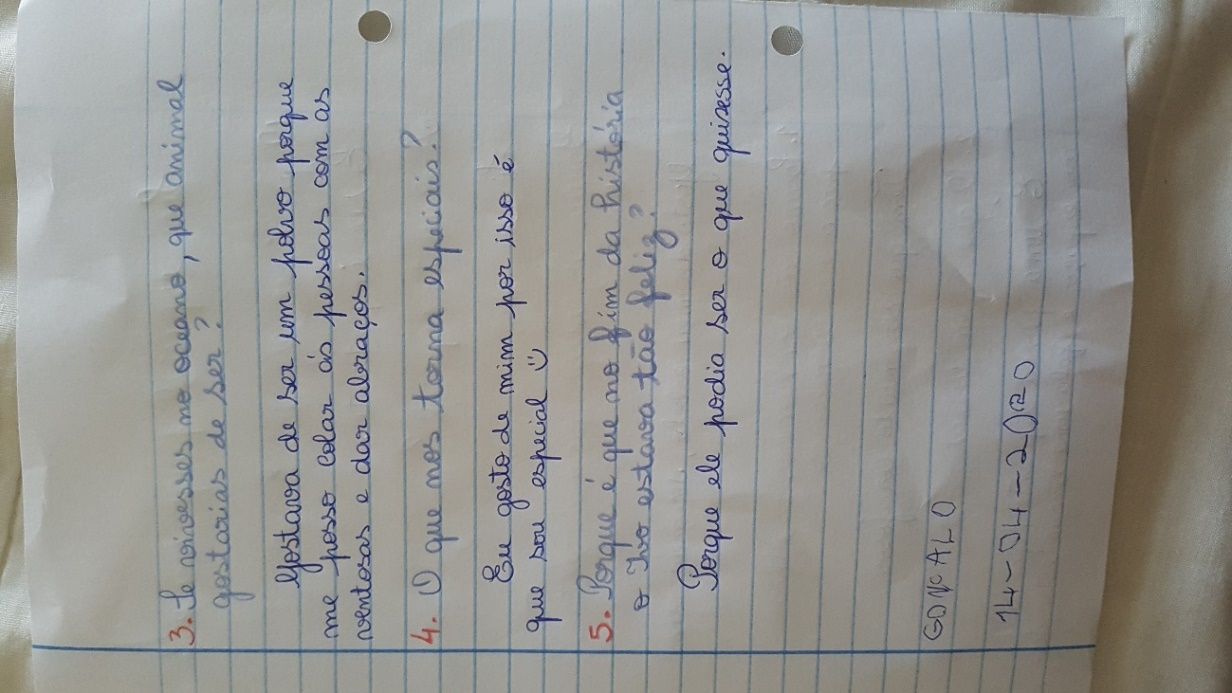 3. Se vivesses no oceano, que animal
gostarias de ser?
Gostava de ser um polvo porque
me posso colar ás pessoas com as
ventosas e dar abraços.
4. O que nos torna especiais?
Eu gosto de mim por isso é
que sou especial ☺
5. Porque é que no fim da história
o Ivo estava tão feliz?
Porque ele podia ser o que quisesse.
GONÇALO
14-04-2020